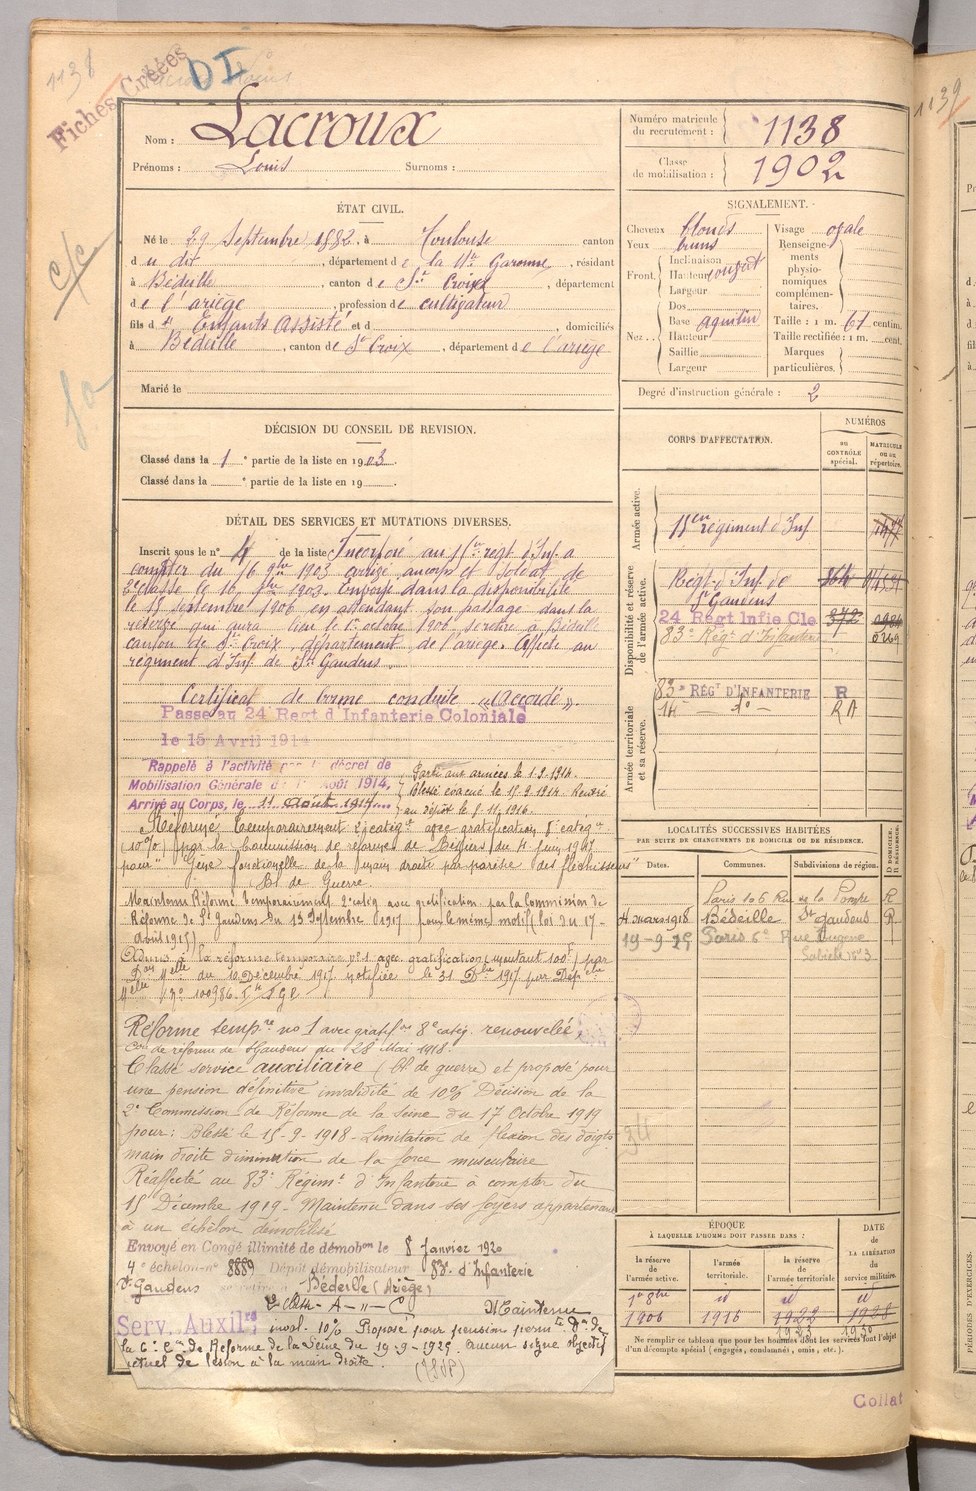 1138
Fiches Créées
DI
1139
Nom : Lacroux
Prénoms : Louis Surnoms :
Numéro matricule du recrutement : 1138
Classe de mobilisation : 1902
ÉTAT CIVIL.
Né le 29 Septembre 1882, à Toulouse canton
d u dit , département de la Hte Garonne, résidant
à Bédeille , canton de Ste Croix , département
de l'ariège , profession de cultivateur
fils d Enfants Assisté et d , domiciliés
à Bédeille , canton de Ste Croix , département de l'ariège
Marié le
SIGNALEMENT.
Cheveux blonds
Yeux bruns
Front. Inclinaison
Hauteur
Largeur
Nez. Dos
Base aquilin
Hauteur
Saillie
Largeur
Visage ovale
Renseignements physionomiques complémentaires.
Taille : 1 m. 61 centim.
Taille rectifiée : 1 m. cent.
Marques particulières.
Degré d'instruction générale : 2
DÉCISION DU CONSEIL DE REVISION.
Classé dans la 1e partie de la liste en 1903.
Classé dans la e partie de la liste en 19
DÉTAIL DES SERVICES ET MUTATIONS DIVERSES.
Inscrit sous le n° 4 de la liste Incorporé au régt d'Inf. a
compter du 16 9bre 1903 arrivé au corps et soldat de
2e classe le 16 9bre 1903. Envoyé dans la disponibilité
le 15 septembre 1906 en attendant son passage dans la
réserve qui aura lieu le 1er octobre 1906 se retire à Bédeille
canton de Ste Croix, département de l'ariège. Affecté au
régiment d'Inf. de St Gaudens.
Certificat de bonne conduite "Accordé".
Passé au 24 Regt d'Infanterie Coloniale
le 15 Avril 1914
Rappelé à l'activité par le décret de
Mobilisation Générale du 1er Août 1914,
Arrivé au Corps, le 11 août 1914
Parti aux armées le 1.9.1914.
Blessé évacué le 15.9.1914. Rentré
au dépôt le 8.11.1916.
Réformé Temporairement 2e catégie avec gratification 8e catégie
(10%) par la Commission de réforme de Béziers du 4 Juin 1917
pour "Gêne fonctionelle de la main droite par parésie des fléchisseurs"
Bl. de Guerre.
Maintenu Réformé temporairement 2e catég avec gratification par la Commission de
Réforme de St Gaudens du 13 Septembre 1917 pour le même motif (loi du 17-
août 1915)
Admis à la réforme temporaire n° 1 avec gratification (montant 100F) par
Don Mlle du 10 Décembre 1917 notifiée le 31 Dbre 1917 par Dép che
Mlle n° 100986.
Réforme temp.re no 1 avec gratifon 8e catég. renouvelée
Con de réforme de St Gaudens du 28 Mai 1918.
Classé service auxiliaire (Bl de guerre) et proposé pour
une pension définitive invalidité de 10% Décision de la
2e Commission de Réforme de la Seine du 17 Octobre 1919
pour : Blessé le 15-9-1918 - Limitation de flexion des doigts
main droite diminution de la force musculaire
Réaffecté au 83e Régimt d'Infanterie à compter du
15 Décembre 1919 - Maintenu dans ses foyers appartenant
à un échelon démobilisé
Envoyé en Congé illimité de démobon le 8 Janvier 1920
4e échelon - n° 8889 Dépôt démobilisateur 83e d'Infanterie
St Gaudens se retire à Bédeille (Ariège)
Maintenu
Serv. Auxilre inval. 10% Proposé pour pension permte Don de
la 6e Con de Réforme de la Seine du 19-9-1925. aucun signe objectif
actuel de lésion à la main droite.
CORPS D'AFFECTATION.
NUMÉROS
au CONTRÔLE spécial.
MATRICULE ou au répertoire.
Armée active.
régiment d'Inf
Disponibilité et réserve de l'armée active.
Régt d'Inf. de St Gaudens
24 Regt Infie Cle
83e Régt d'Infanterie
Armée territoriale et sa réserve.
83e RÉGT D'INFANTERIE R
do RA
LOCALITÉS SUCCESSIVES HABITÉES
PAR SUITE DE CHANGEMENTS DE DOMICILE OU DE RÉSIDENCE.
Dates. Communes. Subdivisions de région. D DOMICILE. R RÉSIDENCE.
Paris 106 Rue de la Pompe R
4 mars 1918 Bédeille St Gaudens R
19-9-25 Paris 6e Rue Eugène
ÉPOQUE
À LAQUELLE L'HOMME DOIT PASSER DANS :
la réserve de l'armée active.
l'armée territoriale.
la réserve de l'armée territoriale
DATE de LA LIBÉRATION du service militaire.
1er 8bre id id id
1906 1916 1922 1928
1923
Ne remplir ce tableau que pour les hommes dont les services font l'objet
d'un décompte spécial (engagés, condamnés, omis, etc.).
Collat
PÉRIODES D'EXERCICES.